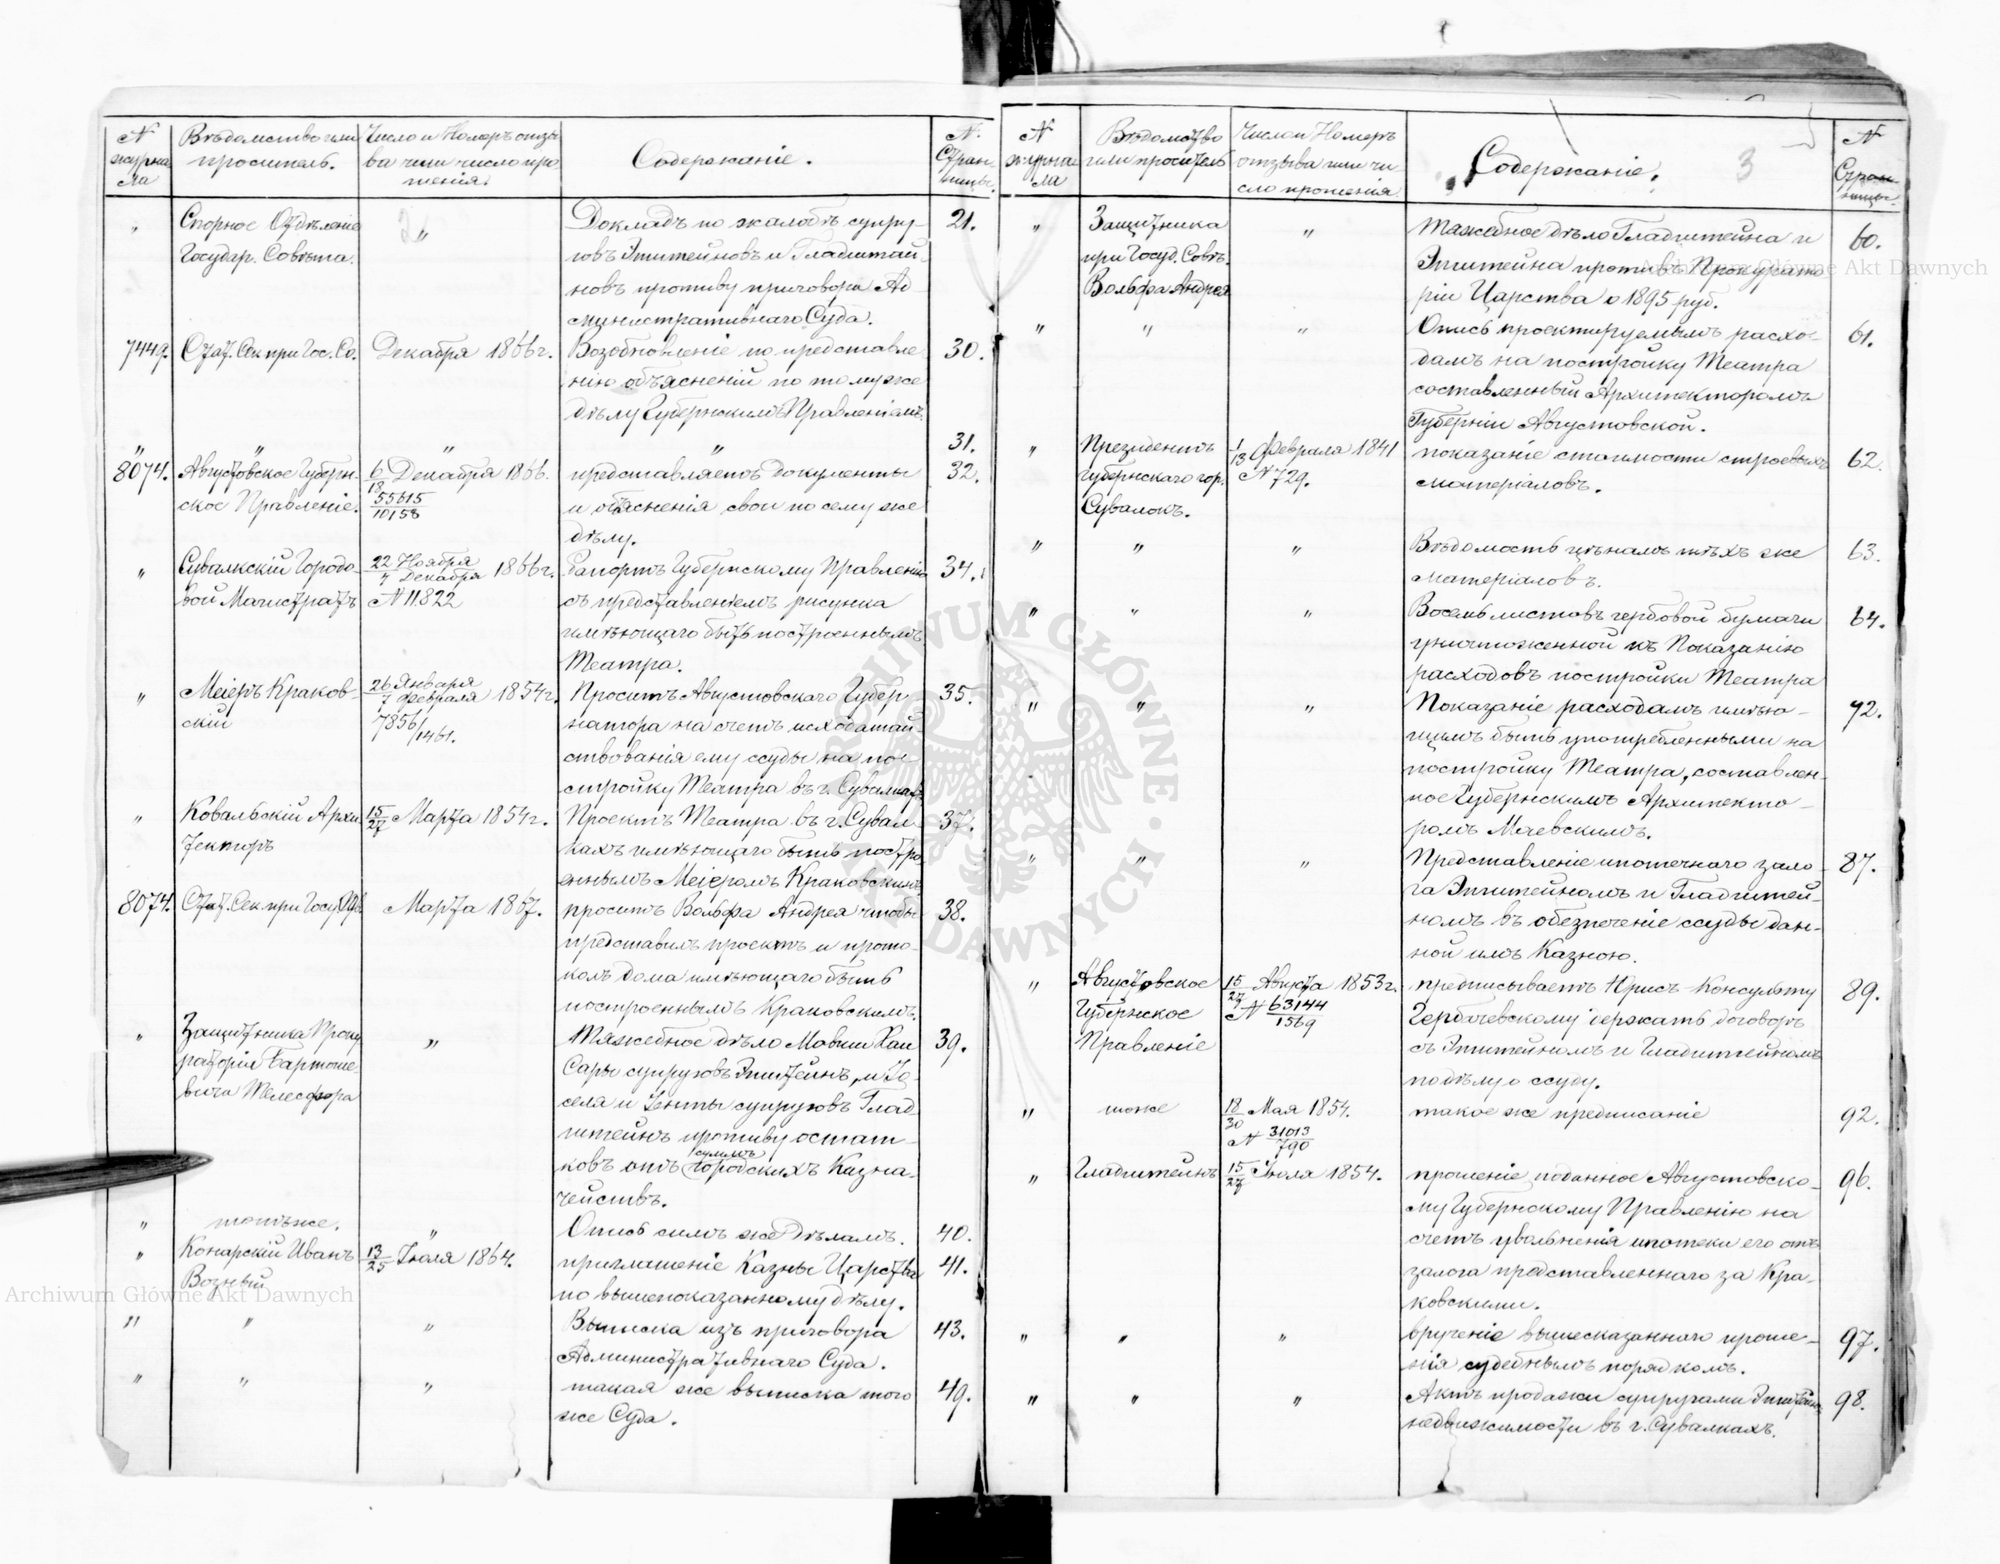 № журнала
Вѣдомство или проситель.
Число и Номеръ отзыва или число прошенія.
Содержаніе.
№ Страницы.
"
Спорное Отдѣленіе
Государ. Совѣта.
"
Докладъ по жалобѣ супру-
говъ Эпштейновъ и Гладштей-
новъ противу приговора Ад-
министративнаго Суда.
21.
7449.
Стат. Сек. при Гос. Со.
Декабря 1866 г.
Возобновленіе по представле-
нію объясненій по тому же
дѣлу Губернскимъ Правленіемъ.
30.
"
"
"
"
31.
8074.
Августовское Губерн-
ское Правленіе.
6/18 Декабря 1866.
55615/10158
представляетъ документы
и объясненія свои по сему же
дѣлу.
32.
"
Сувалкскій Городо-
вой Магистратъ
22 Ноября/4 Декабря 1866 г.
№ 11.822
Рапортъ Губернскому Правленію
съ представленіемъ рисунка
имѣющаго быть построеннымъ
Театра.
34.
"
Меіеръ Краков-
скій
26 Января/7 Февраля 1854 г.
7856/1461.
Проситъ Августовскаго Губер-
натора на счетъ исходатай-
ствованія ему ссуды на по-
стройку Театра въ г. Сувалкахъ
35.
"
Ковальскій Архи-
текторъ
15/27 Марта 1854 г.
Проектъ Театра въ г. Сувал-
кахъ имѣющаго быть постро-
еннымъ Меіеромъ Краковскимъ
37.
8074.
Стат. Сек. при Госуд.
Марта 1867.
проситъ Вольфа Андрея чтобы
представилъ проектъ и прото-
колъ дома имѣющаго быть
построеннымъ Краковскимъ.
38.
"
Защитника Проку
раторіи Бартоше-
вича Телесфора
"
Тяжебное дѣло Мовши Хаи
Сары супруговъ Эпштейнъ, и
селя и Іенты супруговъ Глад
штейнъ противу остат-
ковъ отъ суммъ городскихъ Казна-
чействъ.
39.
"
тотъ же.
"
Опись симъ же Дѣламъ.
40.
"
Конарскій Иванъ
Возный
13/25 Іюля 1864.
приглашеніе Казны Царства
по вышепоказанному дѣлу.
41.
"
"
"
Выписка изъ приговора
Административнаго Суда.
43.
"
"
"
такая же выписка того
же Суда.
49.
3
№ журнала
Вѣдомство или проситель
Число и Номеръ отзыва или число прошенія
Содержаніе.
№ Страницы.
"
Защитника
при Госуд. Совѣ.
Вольфа Андрея
"
Тяжебное дѣло Гладштейна и
Эпштейна противъ Прокурато
ріи Царства о 1895 руб.
60.
"
"
"
Опись проектируемымъ расхо-
дамъ на постройку Театра
составленный Архитекторомъ
Губерніи Августовской.
61.
"
Президентъ
Губернскаго гор.
Сувалокъ.
1/13 Февраля 1841
№ 729.
показаніе стоимости строевыхъ
матеріаловъ.
62.
"
"
"
Вѣдомость цѣнамъ тѣхъ же
матеріаловъ.
63.
"
"
"
Восемь листовъ гербовой бумаги
уничтоженной къ Показанію
расходовъ постройки Театра
64.
"
"
"
Показаніе расходамъ имѣю-
щимъ быть употребленными на
постройку Театра, составлен-
ное Губернскимъ Архитекто-
ромъ Маевскимъ.
72.
"
"
"
Представленіе ипотечнаго зало-
га Эпштейномъ и Гладштей-
номъ въ обезпеченіе ссуды дан-
ной имъ Казною.
87.
"
Августовское
Губернское
Правленіе
15/27 Августа 1853 г.
№ 63144/1569
предписываетъ Юрисъ-Консульту
держать договоръ
съ Эпштейномъ и Гладштейномъ
по дѣлу о ссуду.
89.
"
тоже
18/30 Мая 1854.
№ 31013/790
такое же предписаніе
92.
"
Гладштейнъ
15/27 Іюля 1854.
прошеніе поданное Августовско-
му Губернскому Правленію на
счетъ увольненія ипотеки его отъ
залога представленнаго за Кра-
ковскими.
96.
"
"
"
врученіе вышесказаннаго проше-
нія судебнымъ порядкомъ.
97.
"
"
"
Актъ продажи супругами Эпштейнъ
недвижимости въ г. Сувалкахъ.
98.
ARCHIWUM GŁÓWNE AKT DAWNYCH
Archiwum Główne Akt Dawnych
Archiwum Główne Akt Dawnych